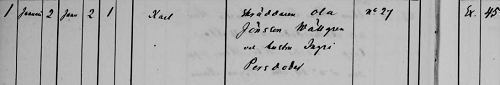 1 Januari 2 Janr 2 1 Karl Skräddaren Ola nº 27 Ex. 45
Jönsson Wällgren
och hustru Ingri
Persdotter